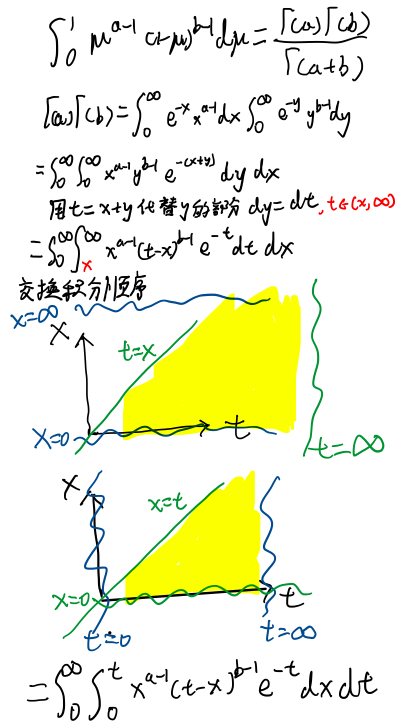 ∫₀¹ μᵃ⁻¹ (1-μ)ᵇ⁻¹ dμ = Γ(a)Γ(b) / Γ(a+b)
Γ(a)Γ(b) = ∫₀^∞ e⁻ˣ xᵃ⁻¹ dx ∫₀^∞ e⁻ʸ yᵇ⁻¹ dy
= ∫₀^∞ ∫₀^∞ xᵃ⁻¹ yᵇ⁻¹ e^-(x+y) dy dx
用t=x+y代替y的部分 dy=dt, t∈(x,∞)
= ∫₀^∞ ∫ₓ^∞ xᵃ⁻¹ (t-x)ᵇ⁻¹ e⁻ᵗ dt dx
交换积分顺序
x=∞
x
t=x
x=0
t
t=∞
x
x=t
x=0
t
t=0
t=∞
= ∫₀^∞ ∫₀ᵗ xᵃ⁻¹ (t-x)ᵇ⁻¹ e⁻ᵗ dx dt